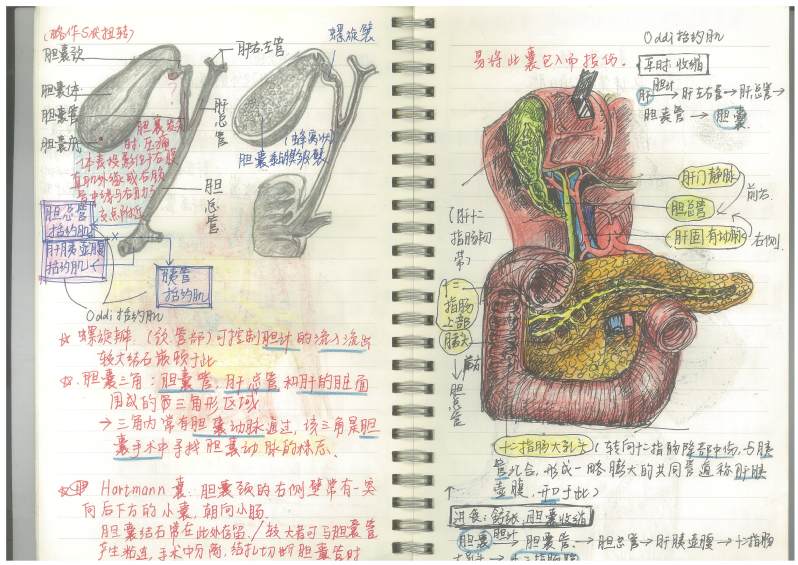 (略作S状扭转)
胆囊颈
胆囊体
胆囊管
胆囊底
肝右左管
肝总管
胆总管
螺旋襞
(蜂窝状)
胆囊黏膜襞
胆囊发炎
时,压痛
体表投影位于右腹
直肌外缘或右锁
骨中线与右肋弓
交点附近
胆总管
括约肌
肝胰壶腹
括约肌
胰管
括约肌
Oddi括约肌
☆ 螺旋瓣.(颈,管部)可控制胆汁的流入流出
较大结石嵌顿于此
☆. 胆囊三角:胆囊管,肝总管和肝的脏面
围成的三角形区域
→三角内常有胆囊动脉通过,该三角是胆
囊手术中寻找胆囊动脉的标志.
Hartmann囊.胆囊颈的右侧壁常有一突
向后下方的小囊.朝向小肠.
胆囊结石常在此外存留./较大者可与胆囊管
产生粘连,手术中分离,结扎切断胆囊管时
易将此囊包入而损伤.
Oddi括约肌
平时:收缩
肝 胆汁→肝左右管→肝总管→
胆囊管→胆囊.
肝门静脉
胆总管
肝固有动脉
前右
右侧
(肝十
二指肠韧
带)
十二
指肠
上部
胰头
后方
↓
胆总管
十二指肠大乳头(转向十二指肠降部中份,与胰
管汇合,形成一略膨大的共同管道称肝胰
壶腹,开口于此)
进食:舒张,胆囊收缩
胆囊 胆汁→胆囊管.→胆总管→肝胰壶腹→十二指肠
大乳头→十二指肠腔